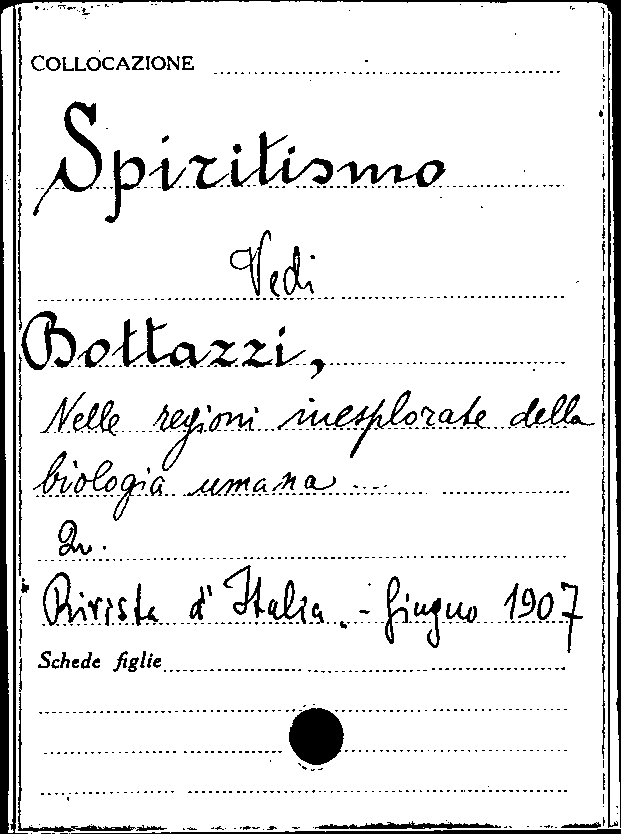 COLLOCAZIONE
Spiritismo
Vedi
Bottazzi,
Nelle regioni inesplorate della
biologia umana ...
In.
Rivista d'Italia. - Giugno 1907
Schede figlie